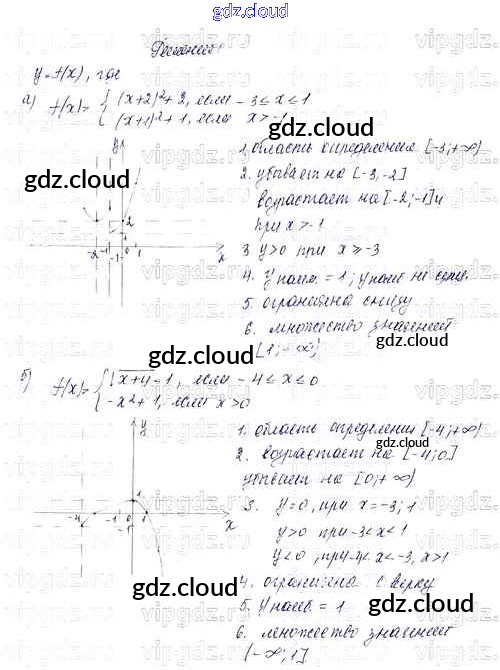 gdz.cloud
Решение
y=f(x), где
а) f(x)= { (x+2)²+2, если -3≤x≤1
(x+1)²+1, если x>-1
gdz.cloud
gdz.cloud
y
2
-2 -1 0 1 x
-1
1. область определения [-3;+∞)
2. убывает на [-3,-2]
возрастает на [-2;-1] и
при x>-1
3 y>0 при x≥-3
4. y наим. = 1; y наиб не сущ.
5. ограничена снизу
6. множество значений
[1;+∞)
gdz.cloud
gdz.cloud
б) f(x)= { √x+4-1, если -4≤x≤0
-x²+1, если x>0
y
1
-4 -1 0 1 x
-1
1. область определения [-4;+∞)
gdz.cloud
2. возрастает на [-4;0]
убывает на [0;+∞)
3. y=0, при x=-3; 1
y>0 при -3<x<1
y<0, при -4<x<-3, x>1
4. ограничена сверху
gdz.cloud
gdz.cloud
5. y наиб = 1
6. множество значений
(-∞;1]
gdz.cloud